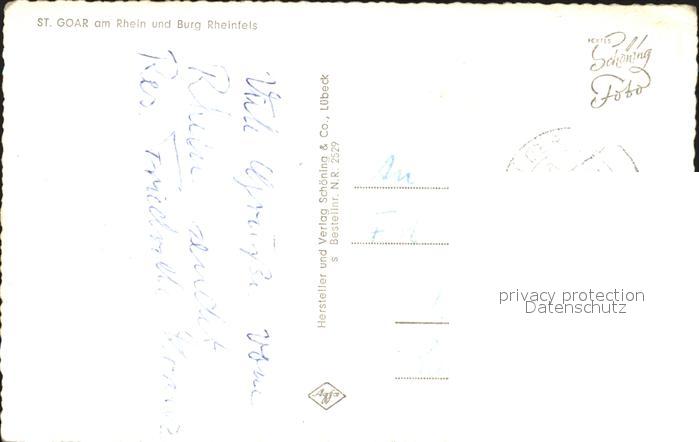 ST. GOAR am Rhein und Burg Rheinfels
Echtes
Schöning
Foto
Viele Grüße vom
Rhein sendet
Hersteller und Verlag Schöning & Co., Lübeck
S Bestellnr. N.R. 2529
An
F
Agfa
privacy protection
Datenschutz